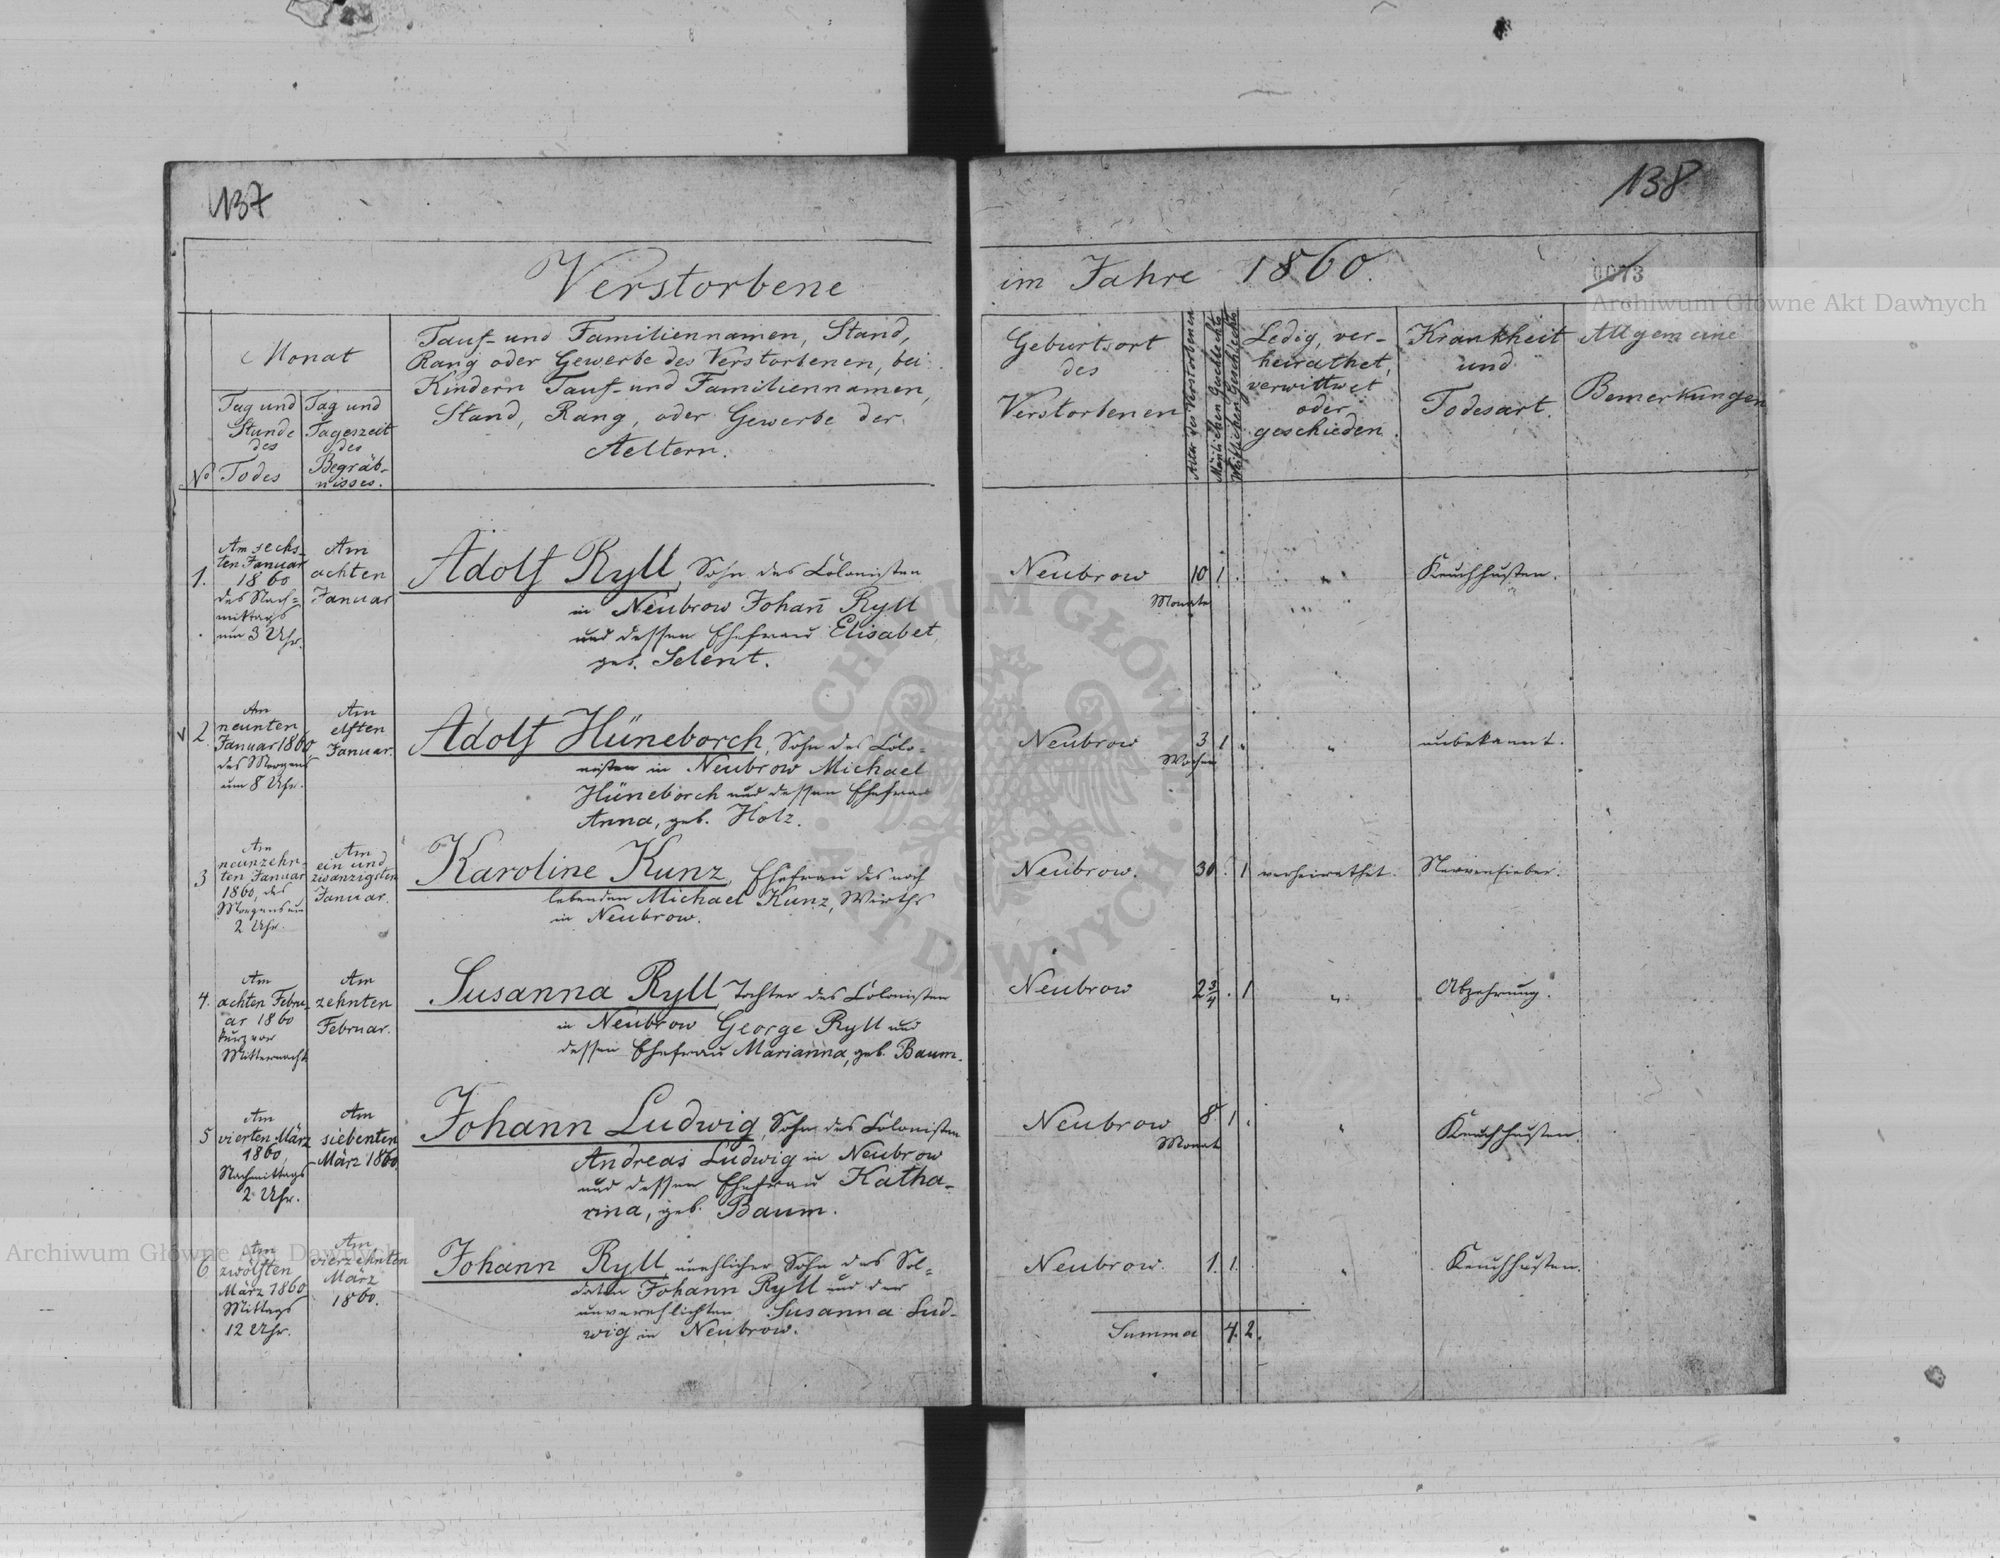 137
138
Verstorbene
im Jahre 1860.
0073
Archiwum Główne Akt Dawnych
Monat
Tauf- und Familiennamen, Stand,
Rang oder Gewerbe des Verstorbenen, bei
Kindern Tauf- und Familiennamen,
Stand, Rang, oder Gewerbe der
Aeltern.
No
Tag und
Stunde
des
Todes
Tag und
Tageszeit
des
Begräb-
nisses.
Geburtsort
des
Verstorbenen
Alter des Verstorbenen
Mänlichen Geschlechts
Weiblichen Geschlechts
Ledig, ver-
heirathet,
verwittwet
oder
geschieden.
Krankheit
und
Todesart.
Allgemeine
Bemerkungen
1.
Am sechs-
ten Januar
1860
des Nach-
mittags
um 3 Uhr.
Am
achten
Januar
Adolf Ryll, Sohn des Colonisten
in Neubrow Johañ Ryll
und dessen Ehefrau Elisabet,
geb. Selent.
Neubrow
10
Monate
1
.
"
Keuchhusten.
2.
Am
neunten
Januar 1860
des Morgens
um 8 Uhr.
Am
elften
Januar.
Adolf Hüneborch, Sohn des Colo-
nisten in Neubrow Michael
Hüneborch und dessen Ehefrau
Anna, geb. Holz.
Neubrow
3
Wochen
1
.
"
unbekannt.
3
Am
neunzehn-
ten Januar
1860, des
Morgens um
2 Uhr.
Am
ein und
zwanzigsten
Januar.
Karoline Kunz, Ehefrau des noch
lebenden Michael Kunz, Wirths
in Neubrow.
Neubrow.
30
.
1
verheirathet.
Nervenfieber.
4.
Am
achten Febru-
ar 1860
kurz vor
Mitternacht
Am
zehnten
Februar.
Susanna Ryll Tochter des Colonisten
in Neubrow George Ryll und
dessen Ehefrau Marianna, geb. Baum.
Neubrow
2 3/4
.
1
"
Abzehrung.
5
Am
vierten März
1860,
Nachmittags
2 Uhr.
Am
siebenten
März 1860
Johann Ludwig, Sohn des Colonisten
Andreas Ludwig in Neubrow
und dessen Ehefrau Katha-
rina, geb. Baum.
Neubrow
8
Monat
1
.
"
Keuchhusten.
6
Am
zwölften
März 1860
Mittags
12 Uhr.
Am
vierzehnten
März
1860.
Johann Ryll, unehlicher Sohn des Sol-
daten Johann Ryll und der
unverehlichten Susanna Lud-
wig in Neubrow.
Neubrow.
1.
1.
"
Keuchhusten.
Summa
4.
2.
Archiwum Główne Akt Dawnych
ARCHIWUM GŁÓWNE · AKT DAWNYCH ·